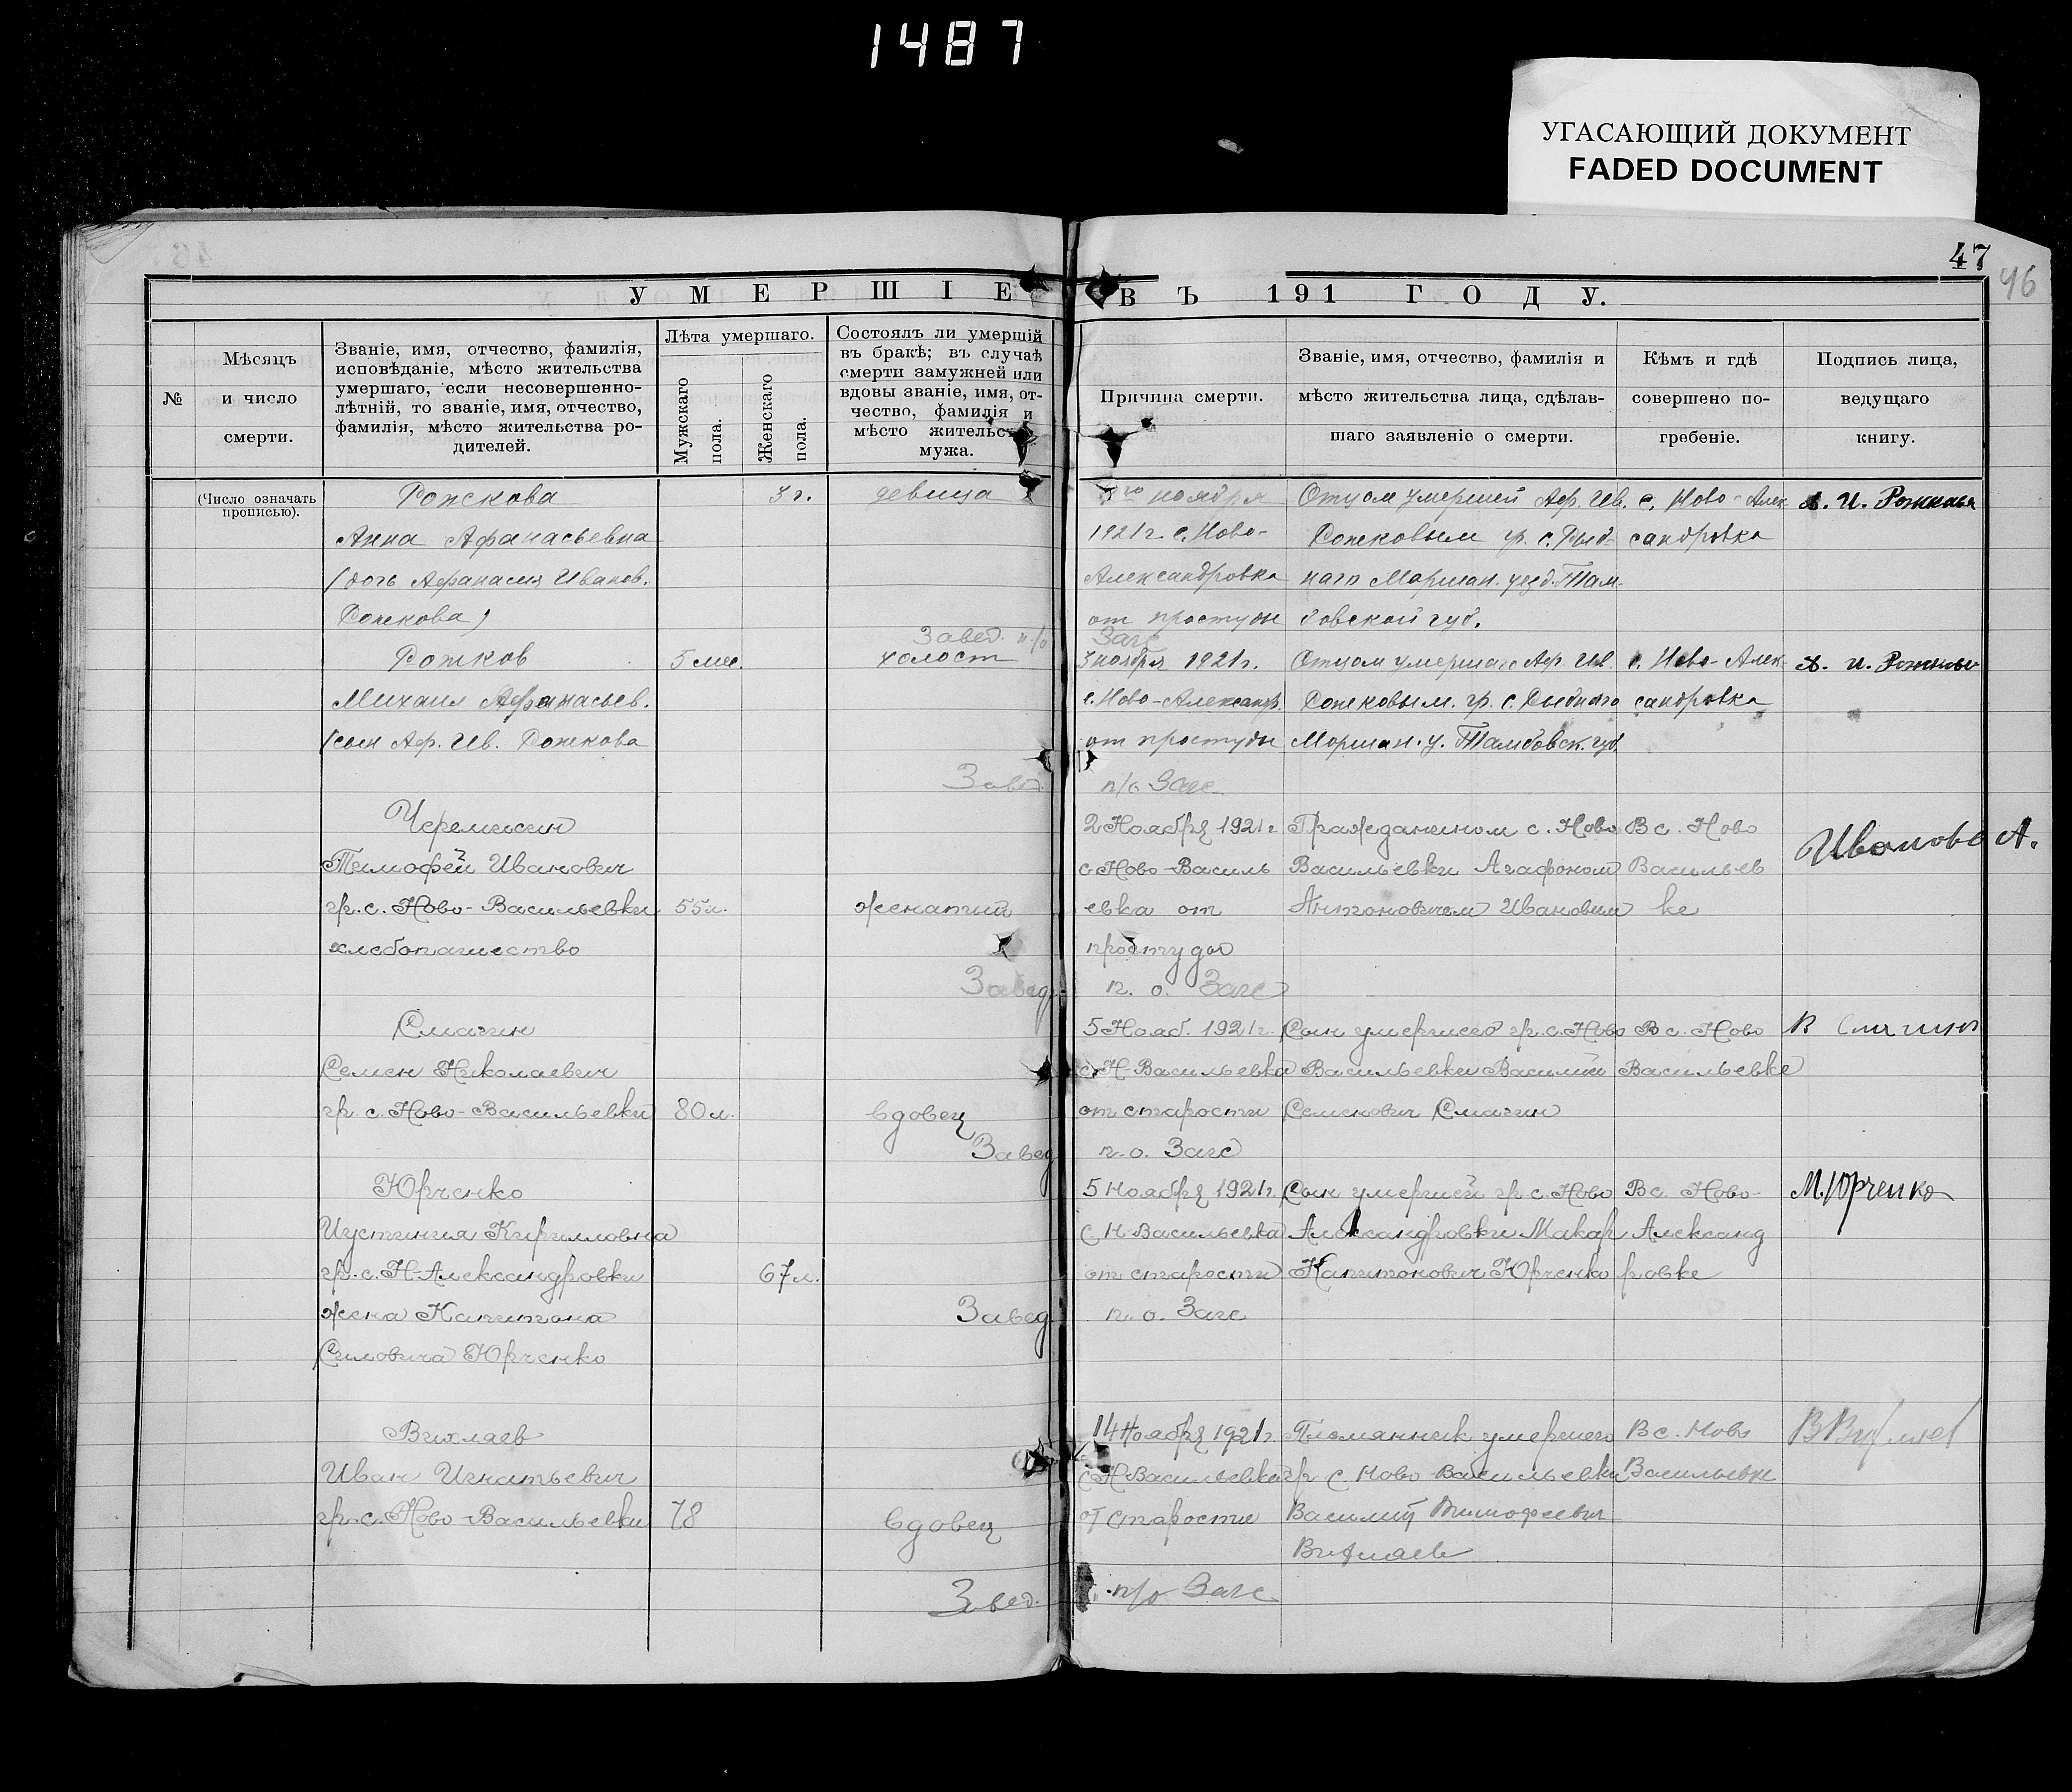 1487
УГАСАЮЩИЙ ДОКУМЕНТ
FADED DOCUMENT
47
46
УМЕРШІЕ ВЪ 191 ГОДУ.
№
Мѣсяцъ
и число
смерти.
Званіе, имя, отчество, фамилія,
исповѣданіе, мѣсто жительства
умершаго, если несовершенно-
лѣтній, то званіе, имя, отчество,
фамилія, мѣсто жительства ро-
дителей.
Лѣта умершаго.
Мужскаго
пола.
Женскаго
пола.
Состоялъ ли умершій
въ бракѣ; въ случаѣ
смерти замужней или
вдовы званіе, имя, от-
чество, фамилія и
мѣсто жительства
мужа.
Причина смерти.
Званіе, имя, отчество, фамилія и
мѣсто жительства лица, сдѣлав-
шаго заявленіе о смерти.
Кѣмъ и гдѣ
совершено по-
гребеніе.
Подпись лица,
ведущаго
книгу.
(Число означать
прописью).
Рожкова
Анна Афанасьевна
(дочь Афанасия Иванов.
Рожкова)
3 г.
девица
ноября
1921 г. с. Ново-
Александровка
от простуды
Отцом умершей Аф. Ив.
Рожковым гр. с.
Моршан. уезд. Там-
бовской губ.
с. Ново-Алек-
сандровка
Завед. п/о Загс
Рожков
Михаил Афанасьев.
(сын Аф. Ив. Рожкова
5 мес.
холост
3 ноября 1921 г.
с. Ново-Александр.
от простуды
Отцом умершаго Аф. Ив.
Рожковым. гр. с.
Моршан. у. Тамбовск. губ.
с. Ново-Алек-
сандровка
Завед. п/о Загс
Черемисин
Тимофей Иванович
гр. с. Ново-Васильевки
хлебопашество
55 л.
женатый
2 Ноября 1921 г.
с Ново-Василь
евка от
простуды
Гражданином с. Ново
Васильевки Агафоном
Антоновичем Ивановым
В с. Ново
Васильев
ке
Иванов А.
Завед. п. о. Загс
Смагин
Семен Николаевич
гр. с. Ново-Васильевки
80 л.
вдовец
5 Нояб. 1921 г.
с Н-Васильевка
от старости
Сын умершего гр. с. Ново
Васильевки Василий
Семенович Смагин
В с. Ново
Васильевке
В Смагин
Завед п. о. Загс
Юрченко
Иустиния Кирилловна
гр. с. Н-Александровки
жена Капитона
Силовича Юрченко
67 л.
5 Ноября 1921 г.
с Н-Васильевка
от старости
Сын умершей гр. с. Ново
Александровки Макар
Капитонович Юрченко
В с. Ново-
Александ
ровке
М. Юрченко
Завед п. о. Загс
Вихляев
Иван Игнатьевич
гр. с. Ново-Васильевки
78
вдовец
14 Ноября 1921 г.
с Н-Васильевка
от старости
Племянник умершего
гр с Ново-Васильевки
Василий Тимофеевич
Вихляев
В с. Ново
Васильевке
В Вихляев
Завед. п/о Загс